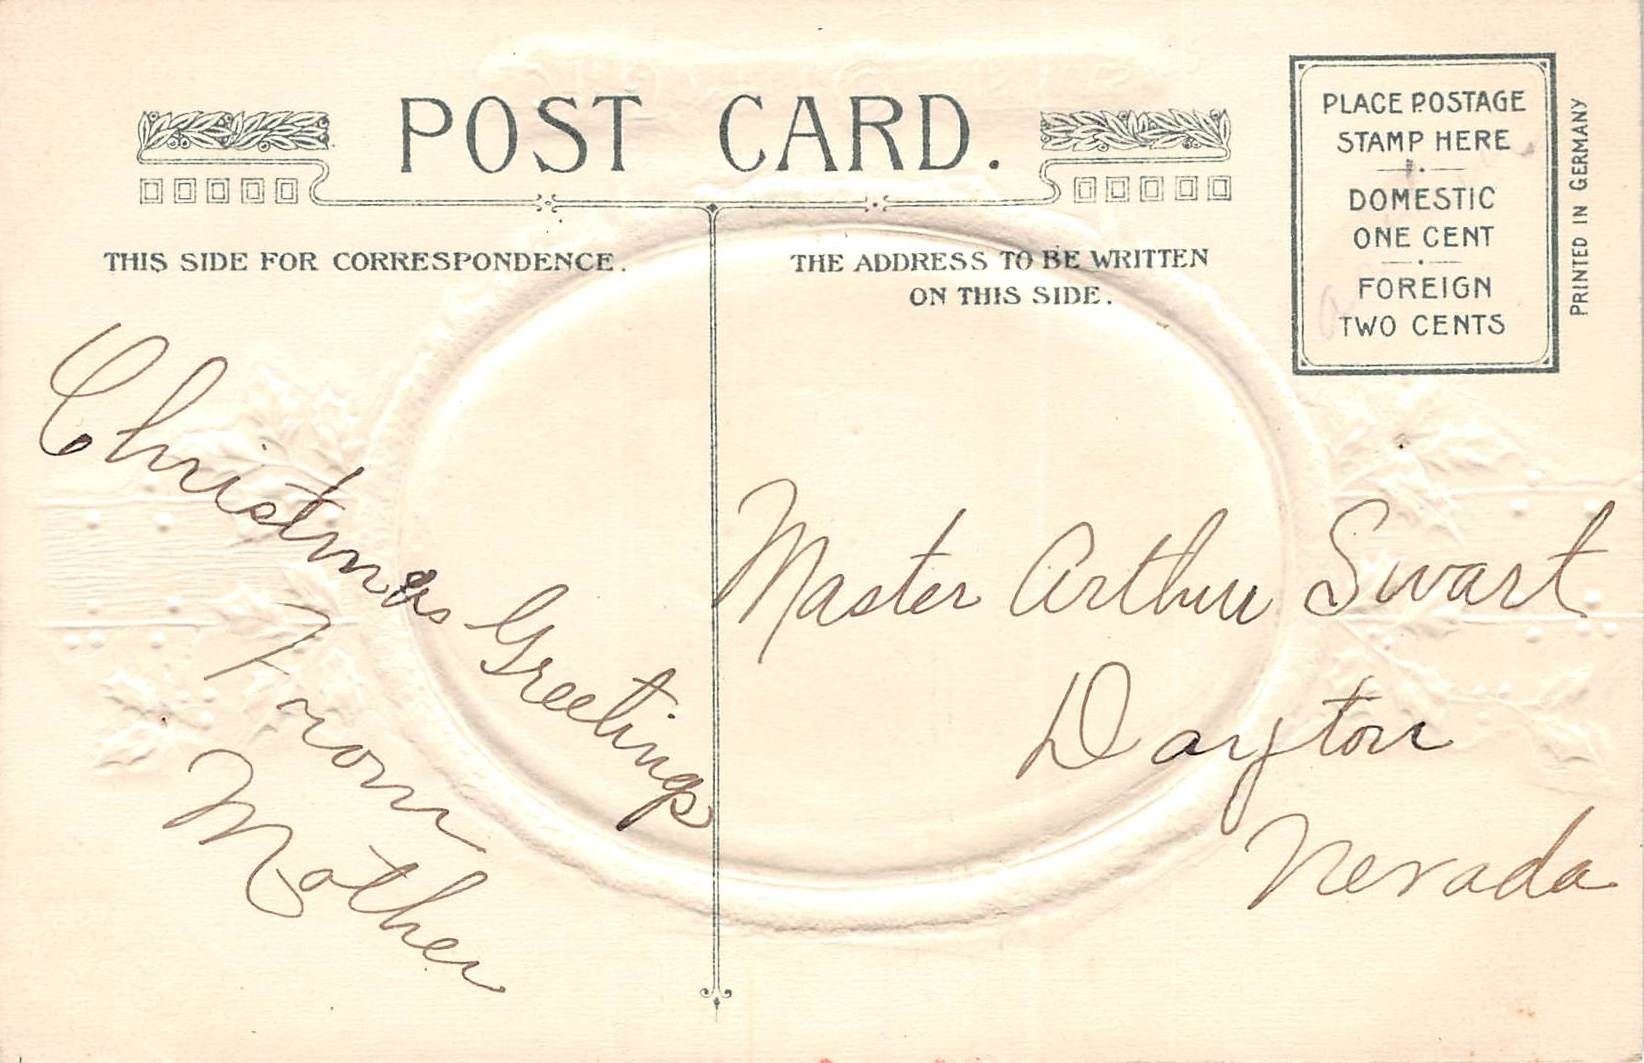 POST CARD.
PLACE POSTAGE
STAMP HERE
DOMESTIC
ONE CENT
FOREIGN
TWO CENTS
PRINTED IN GERMANY
THIS SIDE FOR CORRESPONDENCE.
THE ADDRESS TO BE WRITTEN
ON THIS SIDE.
Christmas Greetings
From
Mother
Master Arthur Swart
Dayton
Nevada